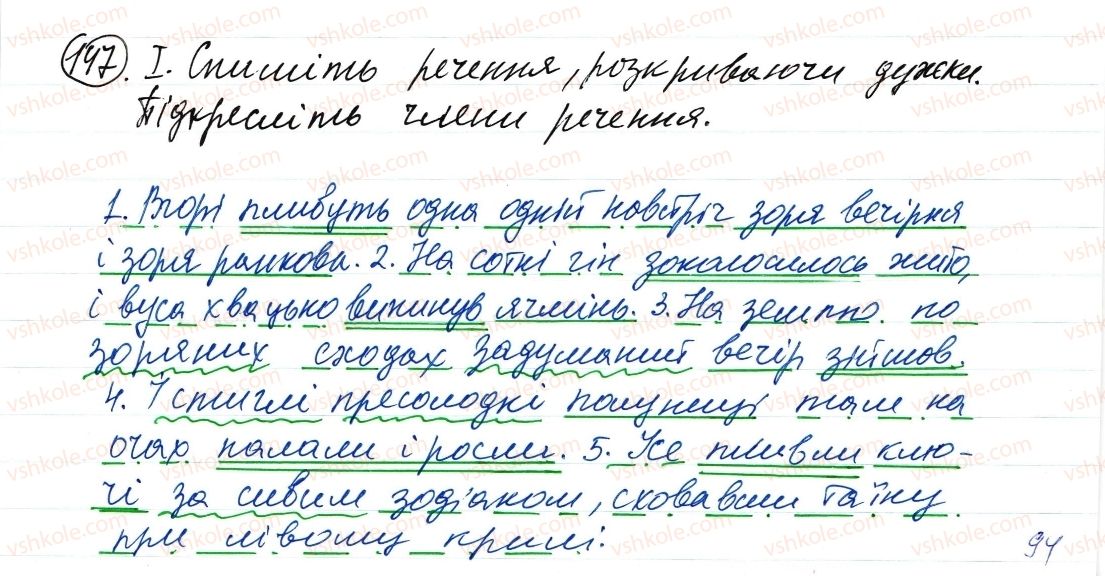 147. I. Спишіть речення, розкриваючи дужки.
Підкресліть члени речення.
1. Вгорі пливуть одна одній навстріч зоря вечірня
і зоря ранкова. 2. На сотні гін заколосилось жито,
і вуса хвацько випинув ячмінь. 3. На землю по
зоряних сходах задуманий вечір зійшов.
4. І стиглі пресолодкі полуниці там на
очах палали і росли. 5. Усе пливли клю-
чі за сивим зодіаком, сховавши тайну
при лівому крилі.
94